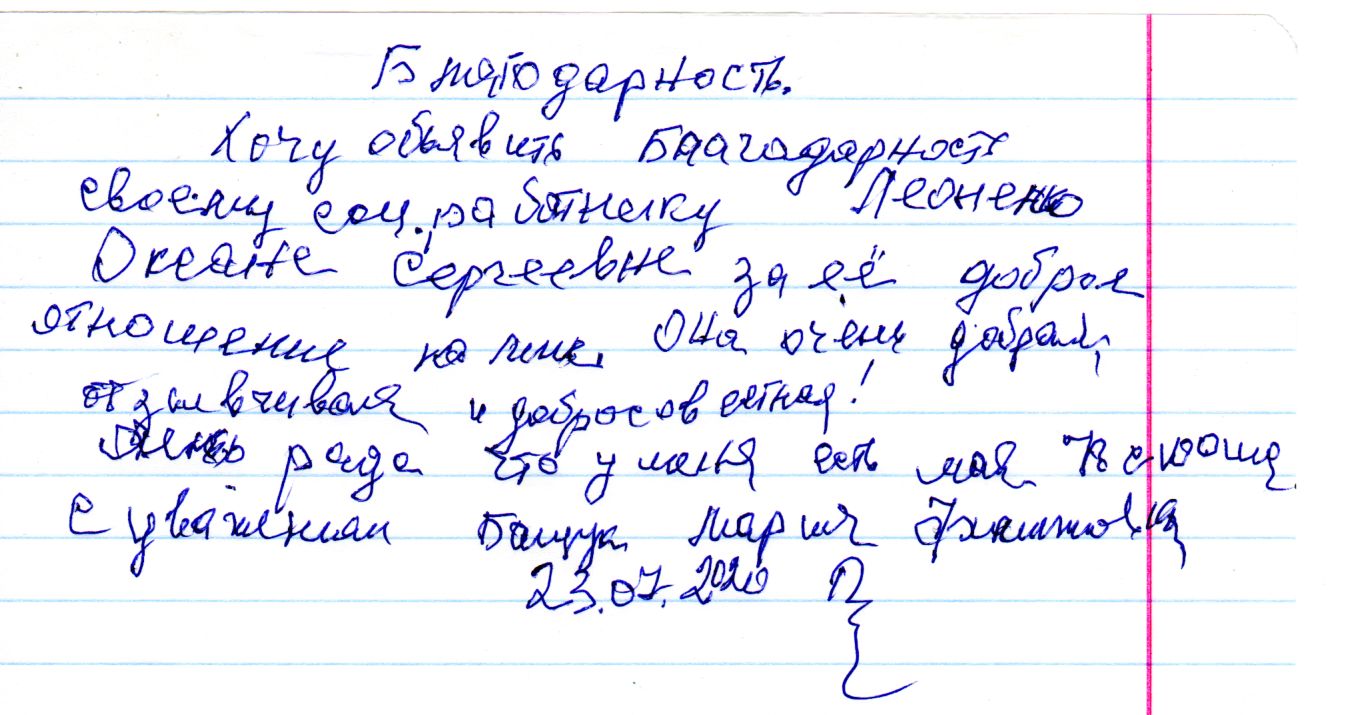 Благодарность.
Хочу обьявить Благадарность
своему соц. работнику Леоненко
Оксане Сергеевне за её доброе
отношение ко мне. Она очень добрая,
отзывчивая и добросовестная!
Очень рада что у меня есть моя
С уважением Бащук Мария
23.07.2020